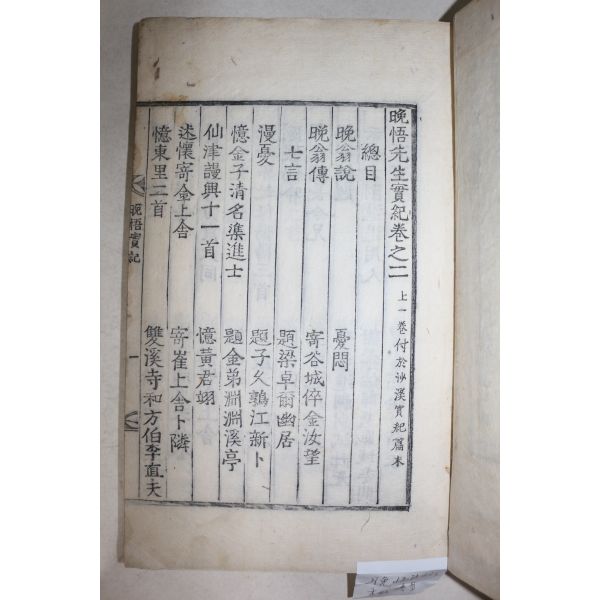 晩悟先生實紀卷之二 上一卷付於沙溪實紀篇末
總目
晩翁說 憂悶
晩翁傳 寄谷城倅金汝望
七言 題梁卓爾幽居
漫憂 題子久鶉江新卜
憶金子清名渫進士 題金弟淵淵溪亭
仙津謾興十一首 憶黃君翊
述懷寄金上舍 寄崔上舍卜隣
憶東里二首 雙溪寺和方伯李直夫
晩悟實紀
一